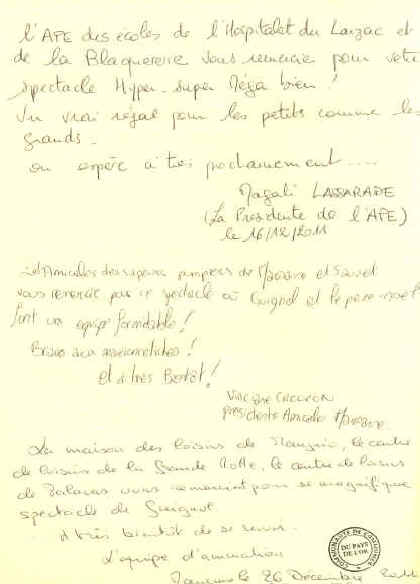 l'APE des écoles de l'Hospitalet du Larzac et
de la Blaquererie vous remercie pour votre
spectacle Hyper-super Méga bien !
Un vrai régal pour les petits comme les
grands.
on espère à très prochainement .....
Magali LASSARADE
(La Présidente de l'APE)
le 16/12/2011
L'Amicale des sapeurs pompiers de et
vous remercie par ce spectacle où Guignol et le père-noël
font un équipe formidable !
Bravo aux marionnettistes !
et à très Bientôt !
présidente Amicale
La maison des loisirs de Mauguio, le centre
de loisirs de la Grande Motte, le centre de loisirs
de Palavas vous remercient pour ce magnifique
spectacle de Guignol.
A très bientôt de se revoir.
L'équipe d'animation
le 26 Décembre
COMMUNAUTE DE COMMUNES
DU PAYS
DE L'OR